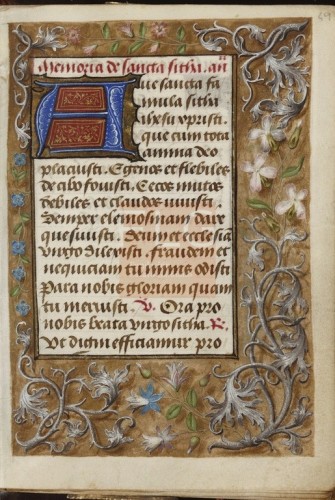 Memoria de sancta sitha. añ
Aue sancta fa
mula sitha
ihesu xpristi.
que cum tota
anima deo
placuisti. Egenos et flebiles
de cibo fouisti. Cecos mutos
debiles et claudos uiuisti.
Semper elemosinam dare
quesiuisti. Deum et ecclesiā
uirgo dilexisti. Fraudem et
nequiciam tu nimis odisti
Para nobis gloriam quam
tu meruisti. V. Ora pro
nobis beata uirgo sitha. R.
Vt digni efficiamur pro